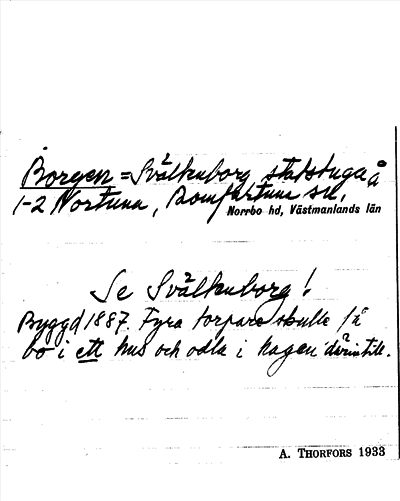 Borgen = Svältenborg, statstuga å
1-2 Nortuna, Romfartuna sn,
Norrbo hd, Västmanlands län
Se Svältenborg!
Byggd 1887. Fyra torpare skulle få
bo i ett hus och odla i hagen därintill.
A. THORFORS 1933